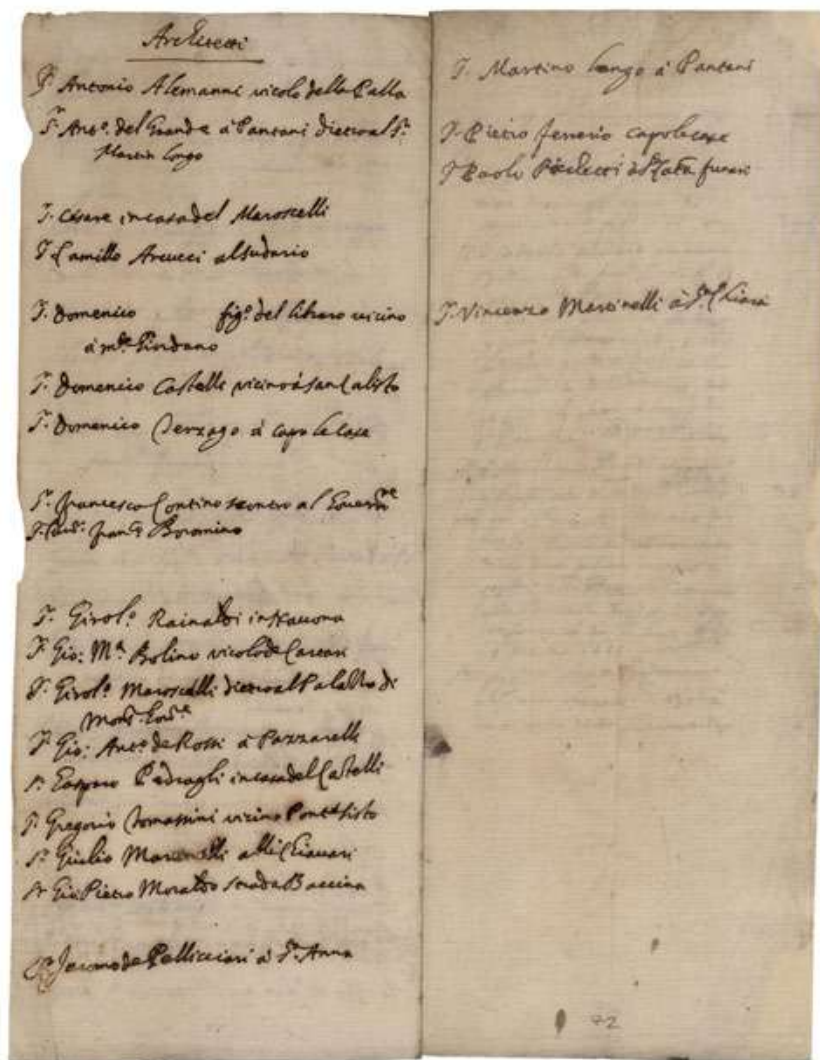 Architetti
Sr. Antonio Alemanni vicolo della Palla
Sr. Anto. del Grande à Pantani dietro al Sr.
Martin longo
Sr. Cesare in casa del Maroscelli
Sr. Camillo Arcucci al sudario
Sr. Domenico figo. del libraro vicino
à mte Giordano
Sr. Domenico Castelli vicino à san Calisto
Sr. Domenico à capo le case
Sr. Francesco Contino incontro al
Sr. Cavr. Franco Boromino
Sr. Girolo. Rainaldi in Navona
Sr. Gio: Ma. Bolino vicolo de
Sr. Girolo. Maroscelli dietro al Palazzo di
Monr.
Sr. Gio: Anto. de Rossi à Pazzarelli
Sr. Gasparo in casa del Castelli
Sr. Gregorio Tomassini vicino Ponte sisto
Sr. Giulio Martinelli alli Chiavari
Sr. Gio Pietro Moraldo strada Baccina
Sr. Jacomo de Pellicciari à Sta. Anna
Sr. Martino longo à Pantani
Sr. Pietro Ferrerio capo le case
Sr. Paolo à Sta. Cata. funari
Sr. Vincenzo Martinelli à Sta. Chiara
72